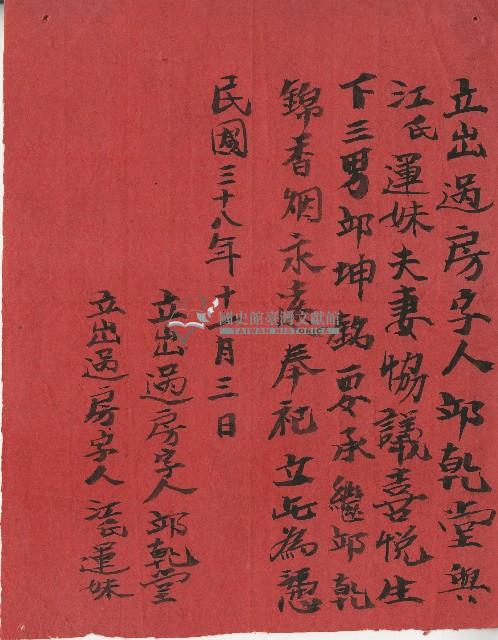 立出過房字人邱乾堂與
江氏運妹夫妻協議喜悅生
下三男邱坤銘要承繼邱乾
錦香烟永遠奉祀立此為憑
民國三十八年十月三日
立出過房字人邱乾堂
立出過房字人江氏運妹
國史館臺灣文獻館
TAIWAN HISTORICA